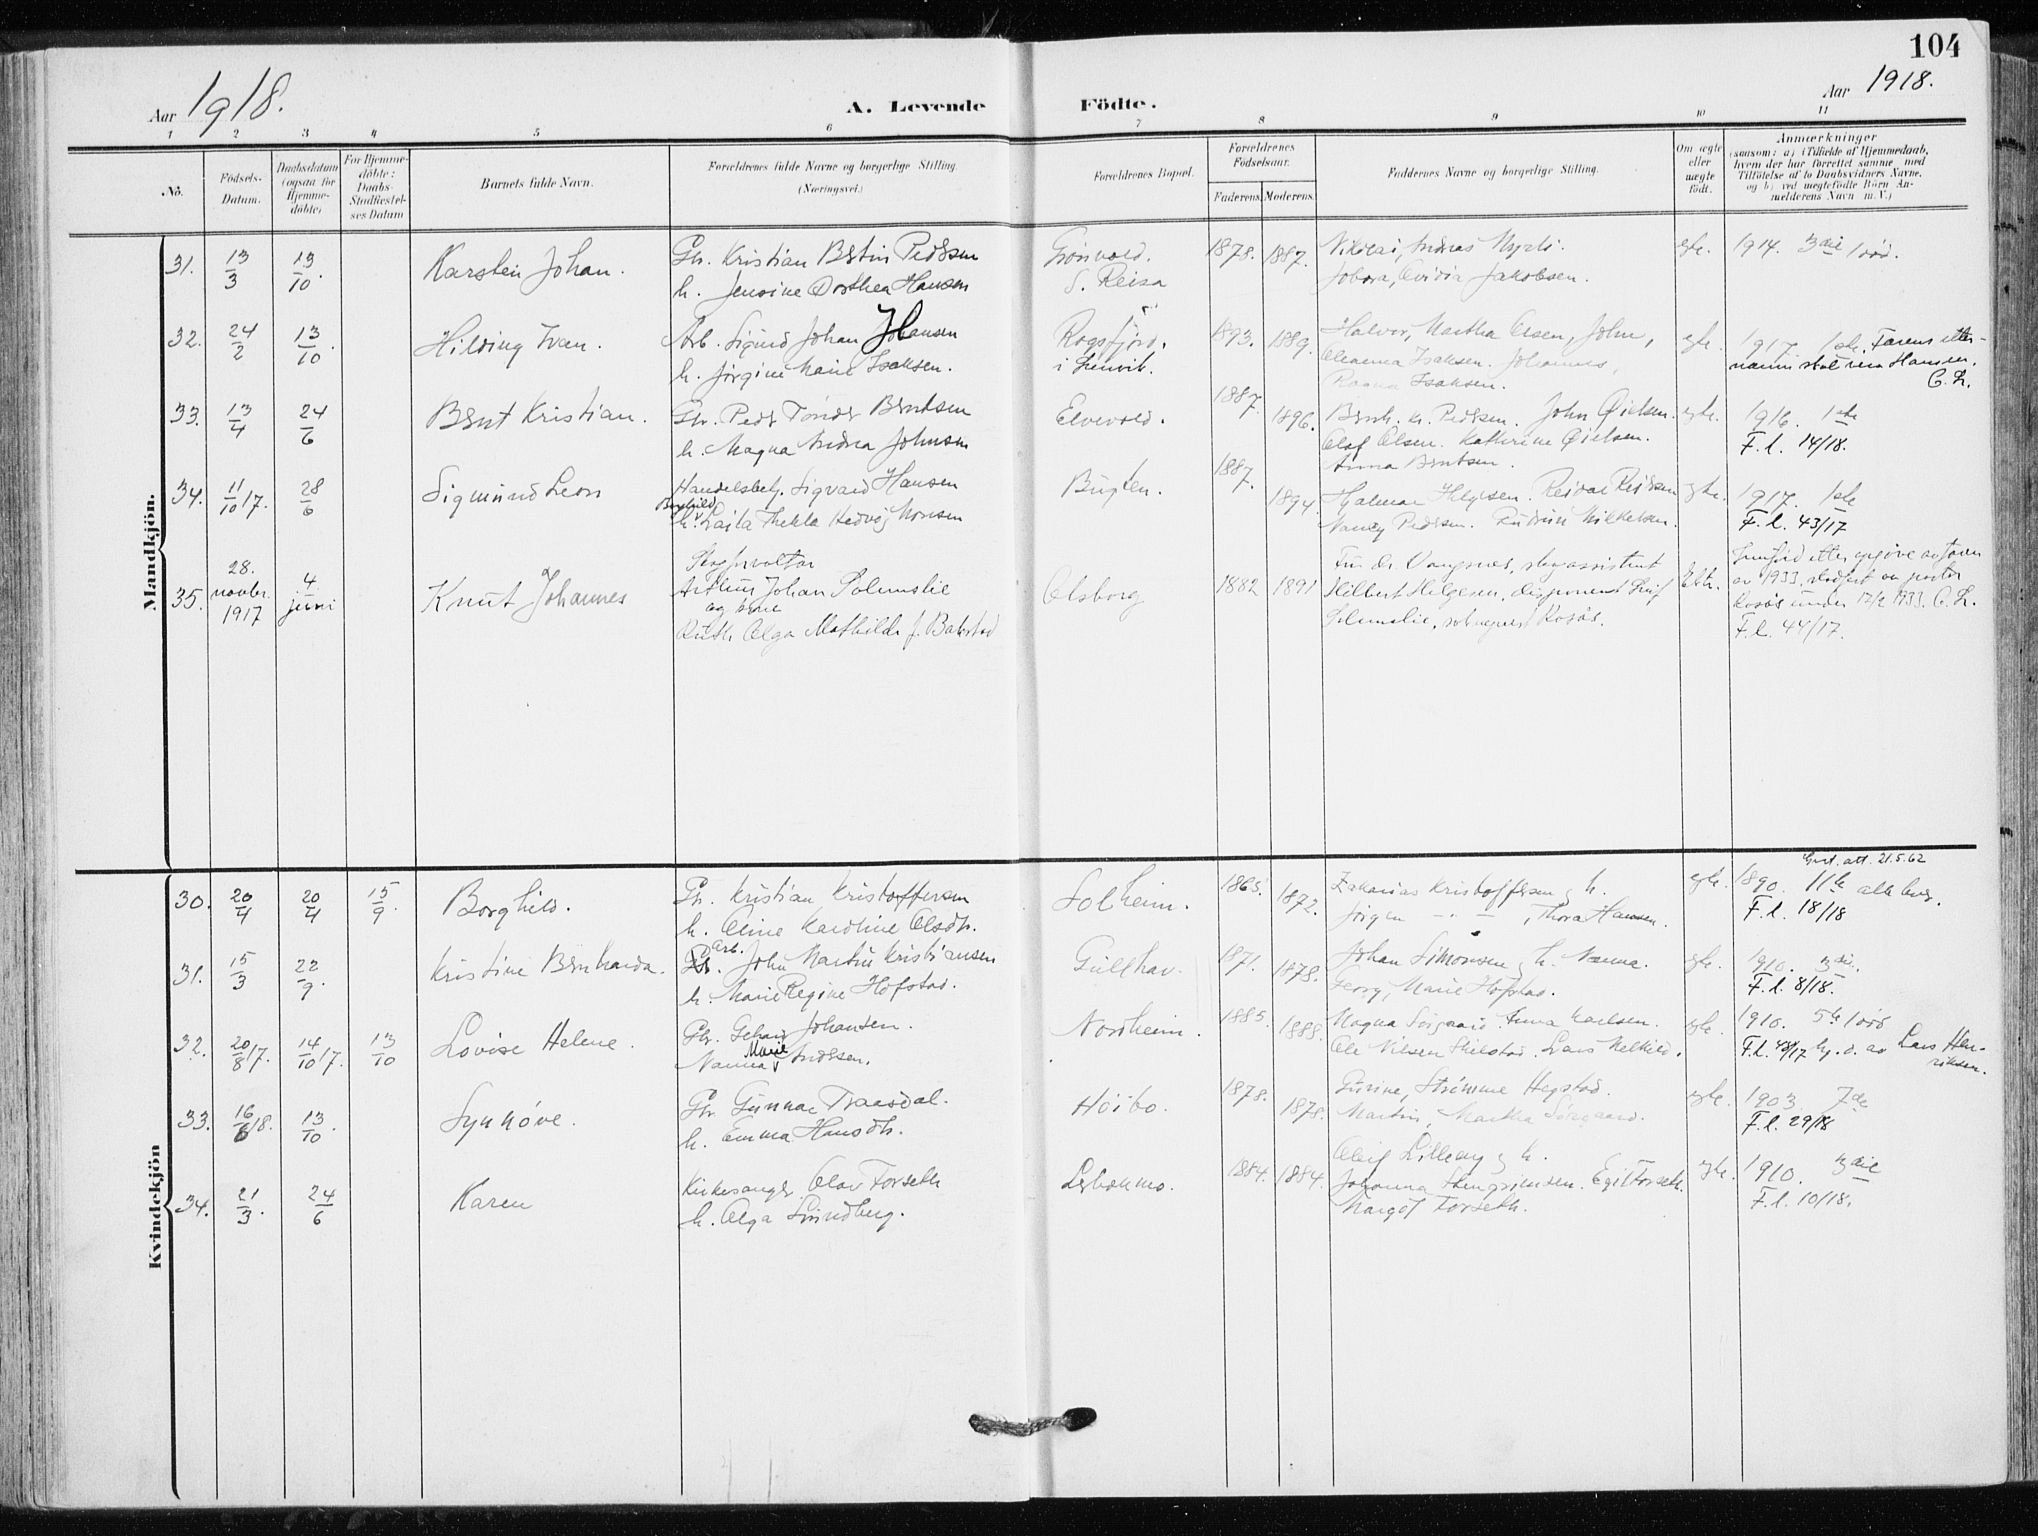 104
Aar 1918.
A. Levende Födte.
Aar 1918.
1 2 3 4 5 6 7 8 9 10 11
No.
Födsels-Datum.
Daabsdatum (ogsaa for Hjemmedöbte)
For Hjemmedöbte: Daabs-Stadfæstelses Datum
Barnets fulde Navn.
Forældrenes fulde Navne og borgerlige Stilling.
(Næringsvei.)
Forældrenes Bopæl.
Forældrenes Födselsaar.
Faderens. Moderens.
Faddernes Navne og borgerlige Stilling.
Om ægte eller uægte födt.
Anmærkninger
(saasom: a) i Tilfælde af Hjemmedaab,
hvem der har forrettet samme, med
Tilföielse af to Daabsvidners Navne,
og b) ved uægtefödte Börn An-
melderens Navn m. V.)
Mandkjön.
31. 13/3 13/10. Karsten Johan.
Gbr. Kristian Bertin Pedersen
h. Jensine Dorthea Hansen
Grönvold.
S. Reisa
1878. 1887.
Nikolai, Andreas Myrli.
Jakobsen.
egte. 1914. 3die
32. 24/2 13/10. Hilding Ivan.
Arb. Sigurd Johan Johansen
h. Jörgine Marie Isaksen.
Rogsfjord.
i Lenvik.
1893. 1889.
Halvor, Martha Olsen, John,
Oleanna Isaksen. Johannes,
Ragna Isaksen.
egte. 1917. 1ste. Farens etter-
navn skal være Hansen.
33. 13/4 24/6 Bernt Kristian.
Gbr. Peder Tönder Berntsen
h. Magna Andrea Johnsen
Elvevold.
1887. 1896.
Bernh. K. Pedersen. John Öielsen.
Olaf Olsen. Kathrine Öielsen.
Anna Berntsen.
egte. 1916. 1ste
F. l. 14/18.
34. 11/10 17. 28/6 Sigmund Leon
Handelsbetj. Sigvard Hansen
Borghild
h. Laila Thekla Hedvig Monsen
Bugten.
1887. 1894.
Hjalmar Helgesen. Reidar Reiersen
Nancy Pedersen. Mikkelsen.
egte. 1917. 1ste
F. l. 43/17
35. 28. novbr. 1917 4. juni Knut Johannes
Skogforvalter
Arthur Johan Solemslie
og kone
Ruth Olga Mathilde f. Bakstad
Olsborg
1882 1891
Fru Dr. Vangsnes, skogassistent
Hilbert Helgesen, disponent Leif
Solemslie, sokneprest Kosös.
Ekte.
F. l. 44/17.
Kvindekjön
30. 20/4 20/4 15/9. Borghild.
Gb. Kristian Kristoffersen
h. Oline Karoline Olsdtr.
Solheim.
1865. 1872.
Zakarias Kristoffersen og h.
Jörgen – " –, Thora Hansen.
egte. 1890. 11te alle lev.
F. l. 18/18
Gvt. att. 21.5.62
31. 15/3 22/9. Kristine Bernharda.
Arb. John Martin Kristiansen
h. Marie Regine Hofstad.
Gullhav.
1871. 1878.
Johan Simonsen og h. Nanna.
Georg, Marie Hofstad.
egte. 1910. 3die.
F. l. 8/18.
32. 20/8 17. 14/10 17. 13/10 Lovise Helene.
Gbr. Gerhard Johansen.
Nanna Marie Andersen.
Nordheim.
1885. 1888.
Magna Sörgaard. Anna Karlsen.
Ole Nilsen Skilstad. Lars Melkild.
egte. 1910. 5te
F. l. 48/17 hj. d. av Lars Hen-
riksen.
33. 16/6 18. 13/10. Synnöve.
Gbr. Gunnar Traasdal.
h. Emma Hansdtr.
Höibo.
1878. 1878.
Gurine, Strömme Hegstad.
Martin, Martha Sörgaard.
egte. 1903 7de
F. l. 29/18
34. 21/3. 24/6 Karen
Kirkesanger Olav Forseth
h. Olga Sundberg.
1884. 1884.
h.
Johanna Steingrimsen. Egil Forseth.
Margot Forseth.
egte. 1910. 3die
F. l. 10/18.